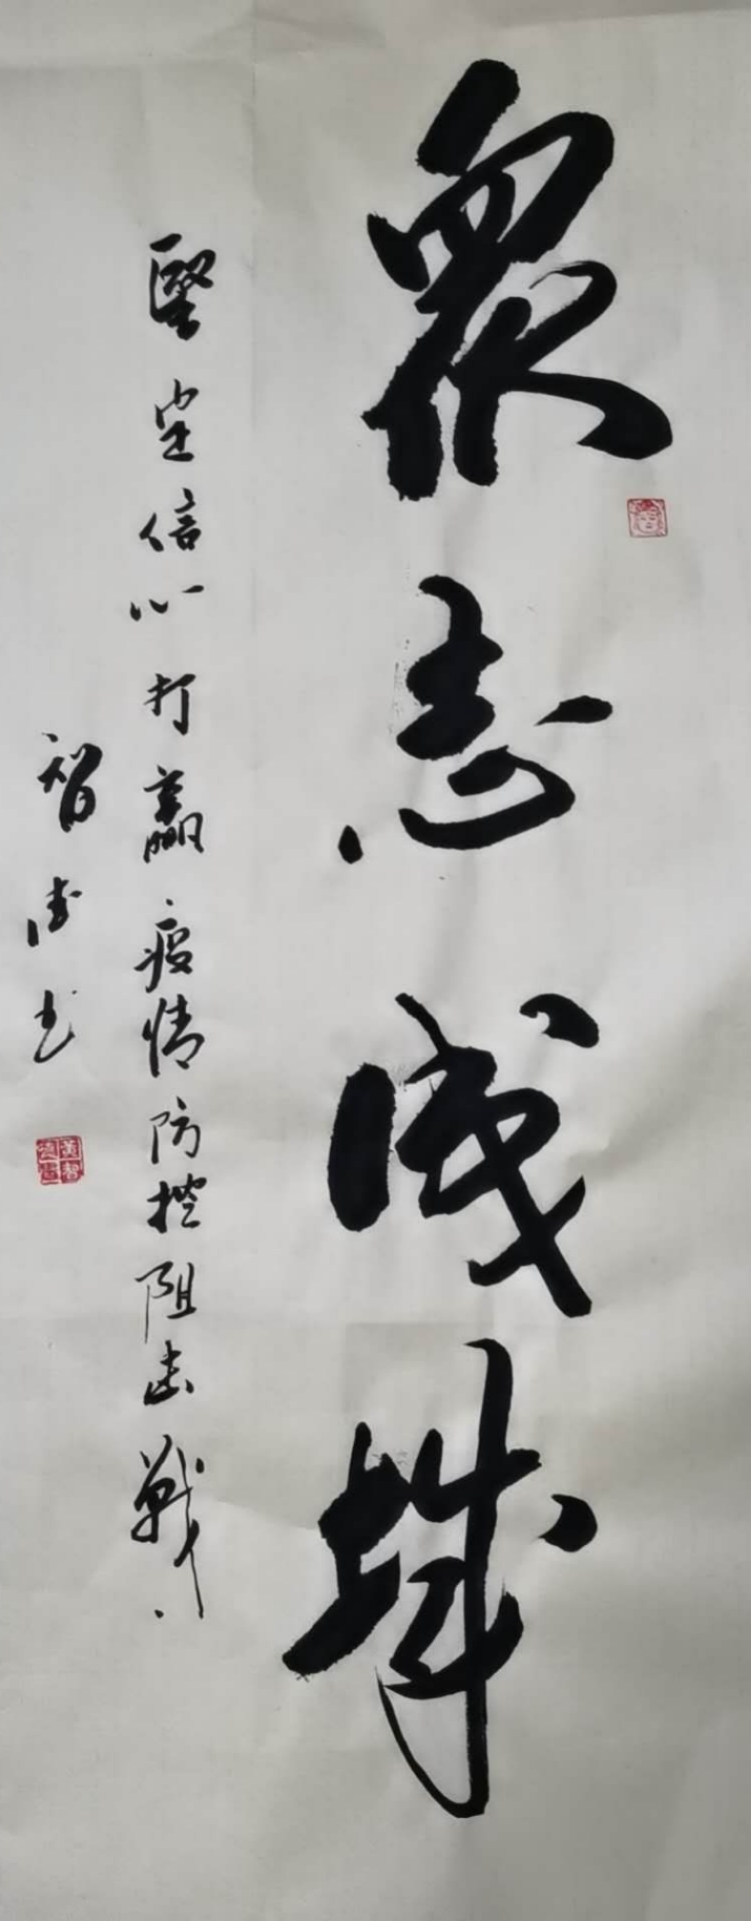 衆志成城
堅定信心打贏疫情防控阻击戰
智德书